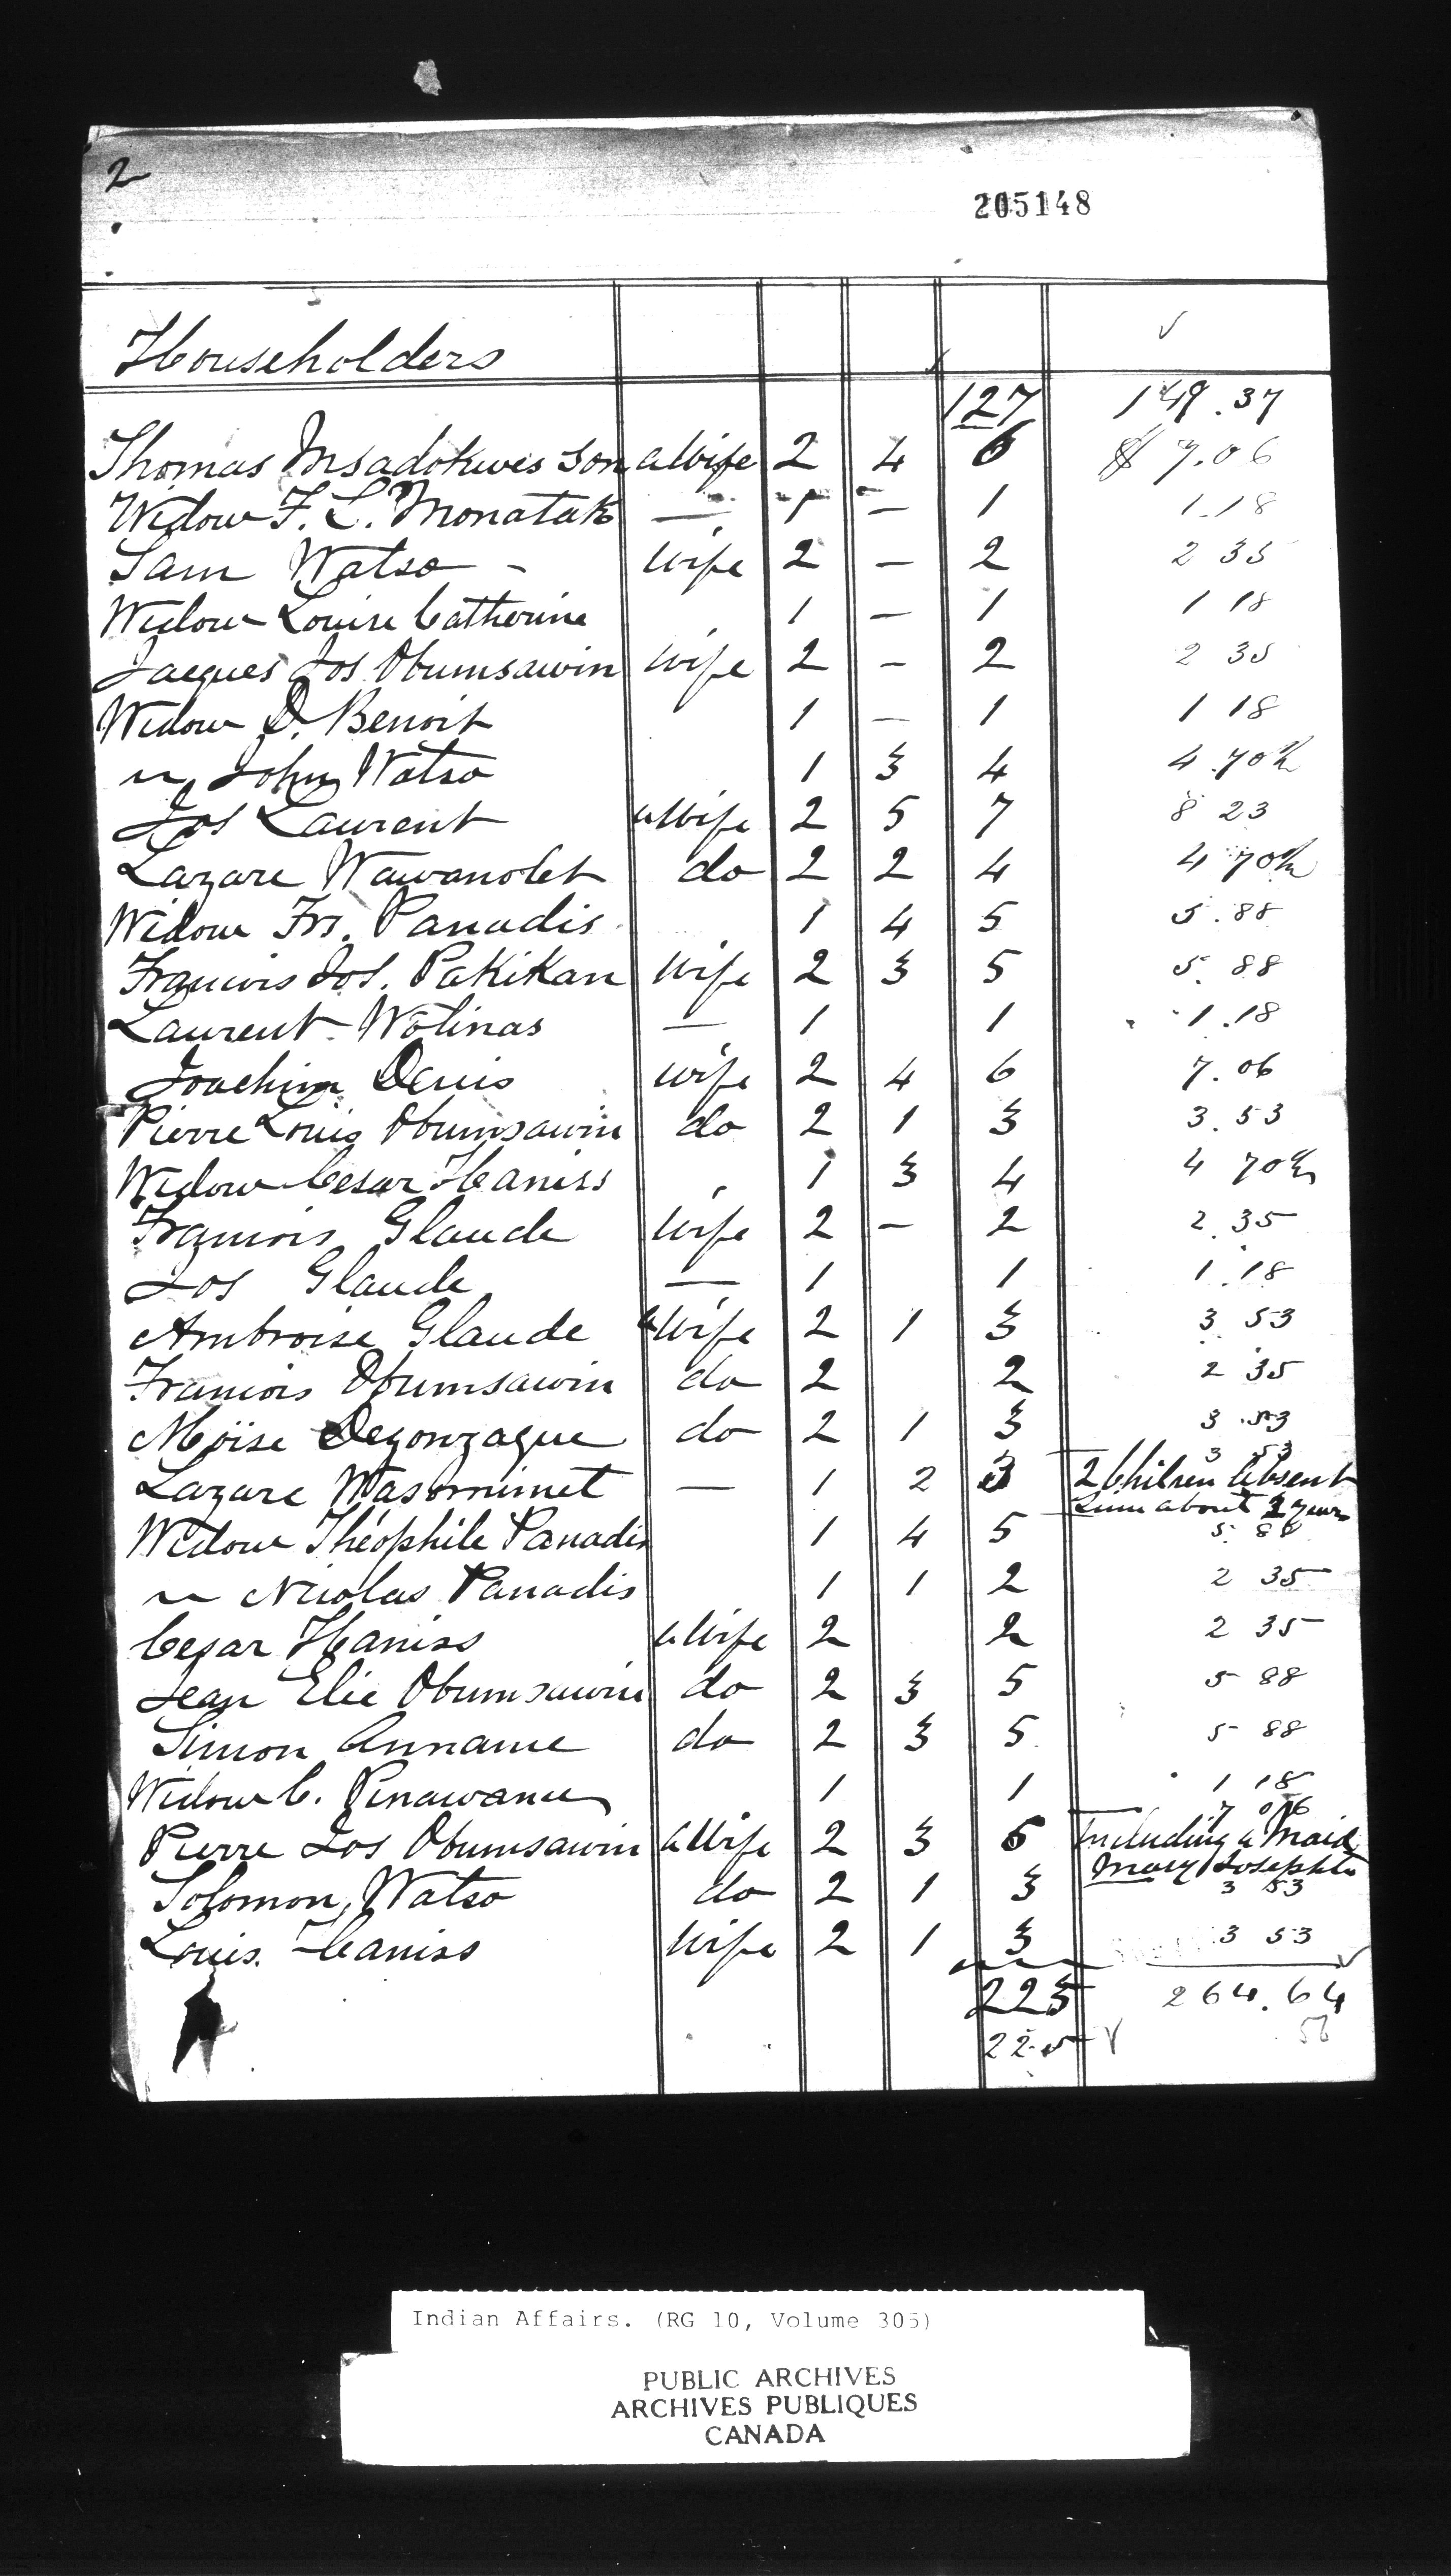 2
205148
Householders
127 149.37
Thomas Msadokwes son a Wife 2 4 6 $ 7.06
Widow F. L. Monatak — 1 — 1 1.18
Sam Watso - Wife 2 — 2 2 35
Widow Louise Catherine 1 — 1 1 18
Jacques Jos Obumsawin Wife 2 - 2 2 35
Widow D. Benoit 1 — 1 1 18
" John Watso 1 3 4 4.70½
Jos Laurent a Wife 2 5 7 8 23
Lazare Wawanolet do 2 2 4 4 70½
Widow Frs. Panadis 1 4 5 5.88
Francois Jos. Pakikan Wife 2 3 5 5.88
Laurent Wolinas — 1 1 1.18
Joachim Denis wife 2 4 6 7.06
Pierre Louis Obumsawin do 2 1 3 3.53
Widow Cesar Haniss 1 3 4 4 70½
Francois Glaude Wife 2 — 2 2.35
Jos Glaude — 1 1 1.18
Ambroise Glaude a Wife 2 1 3 3 53
Francois Obumsawin do 2 2 2 35
Moïse Degonzague do 2 1 3 3.53
Lazare Wasomimet — 1 2 3 3 53
2 Children Absent
Since about 2 years
Widow Théophile Panadis 1 4 5 5.88
" Nicolas Panadis 1 1 2 2 35
Cesar Haniss a Wife 2 2 2 35
Jean Elie Obumsawin do 2 3 5 5 88
Simon Anname do 2 3 5. 5 88
Widow C. Pinawans 1 1 1 18
Pierre Jos Obumsawin a Wife 2 3 6 7 06
Including a Maid
Mary Josephte
Solomon Watso do 2 1 3 3 53
Louis. Haniss Wife 2 1 3 3 53
225 264.64
225 56
Indian Affairs. (RG 10, Volume 305)
PUBLIC ARCHIVES
ARCHIVES PUBLIQUES
CANADA